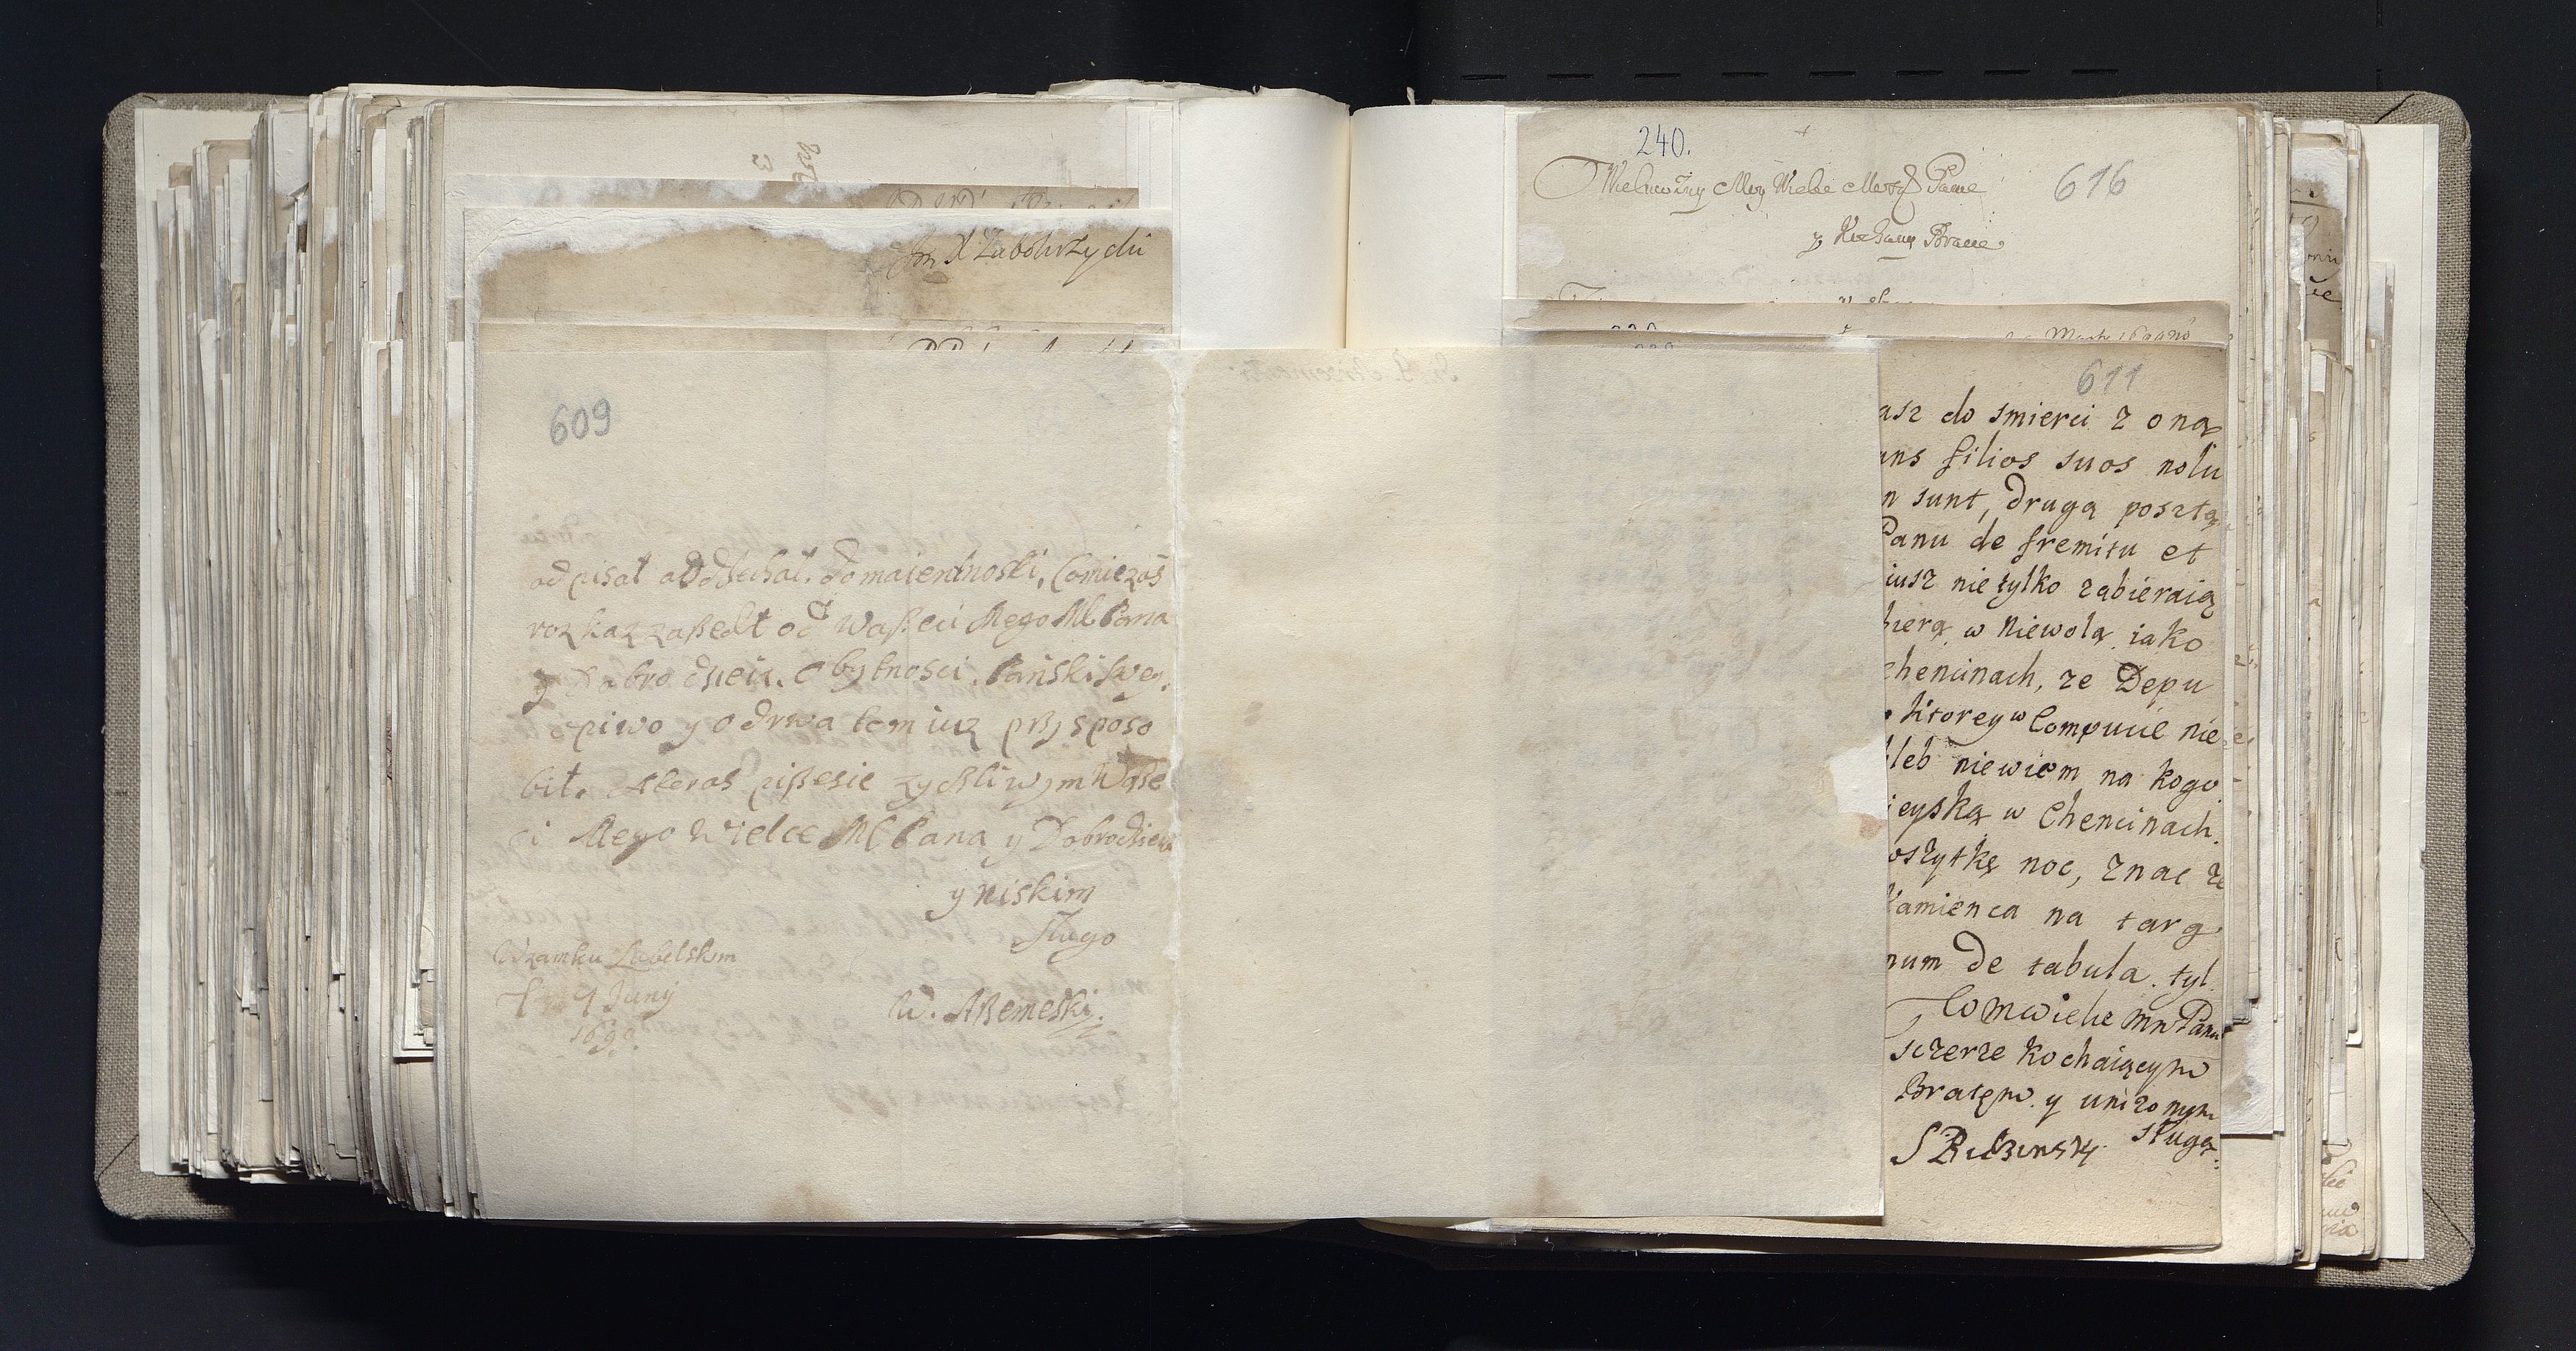 Jm X Zabokrzycki
609
odpisał a oddiechał. do maientnosti, Comiezas
rozkaz zaßedł od Waßeci Mego Ml Pana
y Dobrodzieia. o bytnosci. Panski swey.
o piwo y o drwa tom iuz przysposo
bił. A teras pißesie zyczliwym Waße
ci Mego Wielce Ml Pana y Dobrodzieia
y niskim
sługo
W zamku Lubelskim
9 Juny
W. Rzemeski.
240.
616
Wielmozny Mey Wielce Mosci Panie
y Kochany Bracie
611
asz do smierci z oną
ans filios suos nolu
n sunt, drugą posztą
Panu de fremitu et
iusz nie tylko zabieraią
bierą w niewolą iako
chencinach, ze Depu
ktorey w Compucie nie
leb niewiem na kogo
ieyską w Chencinach.
oszytkę noc, znac ze
Kamienca na targ
num de tabula. tyl
Com wielce mn Panu
sczerze kochaiącym
Bratem y unizonym
sługą